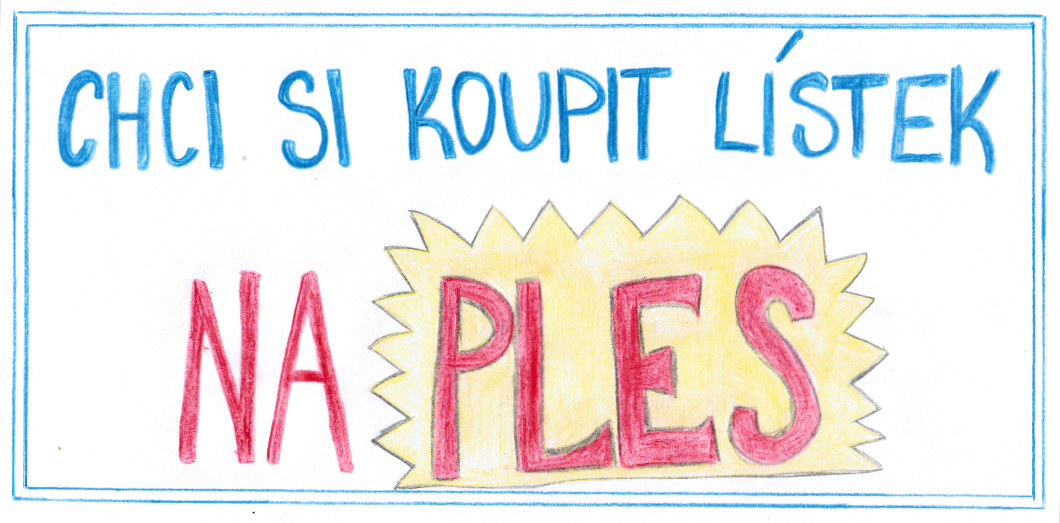 CHCI SI KOUPIT LÍSTEK
NA PLES